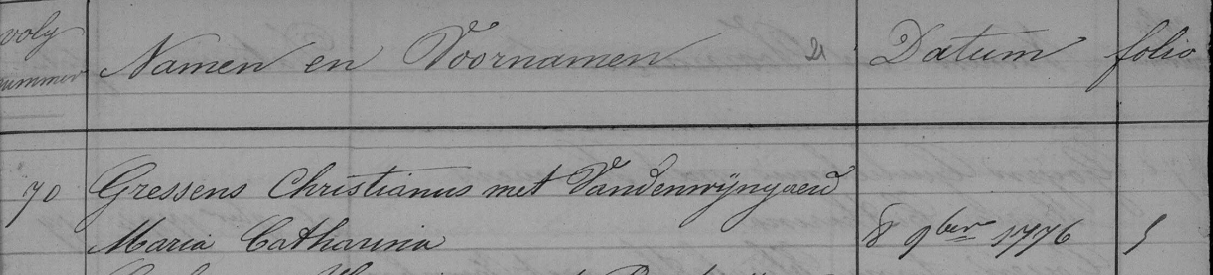 volg Namen en Voornamen 21 Datum folio
nummer
70 Gressens Christianus met Vandenwyngaerd
Maria Catharina 8 9ber 1776 5